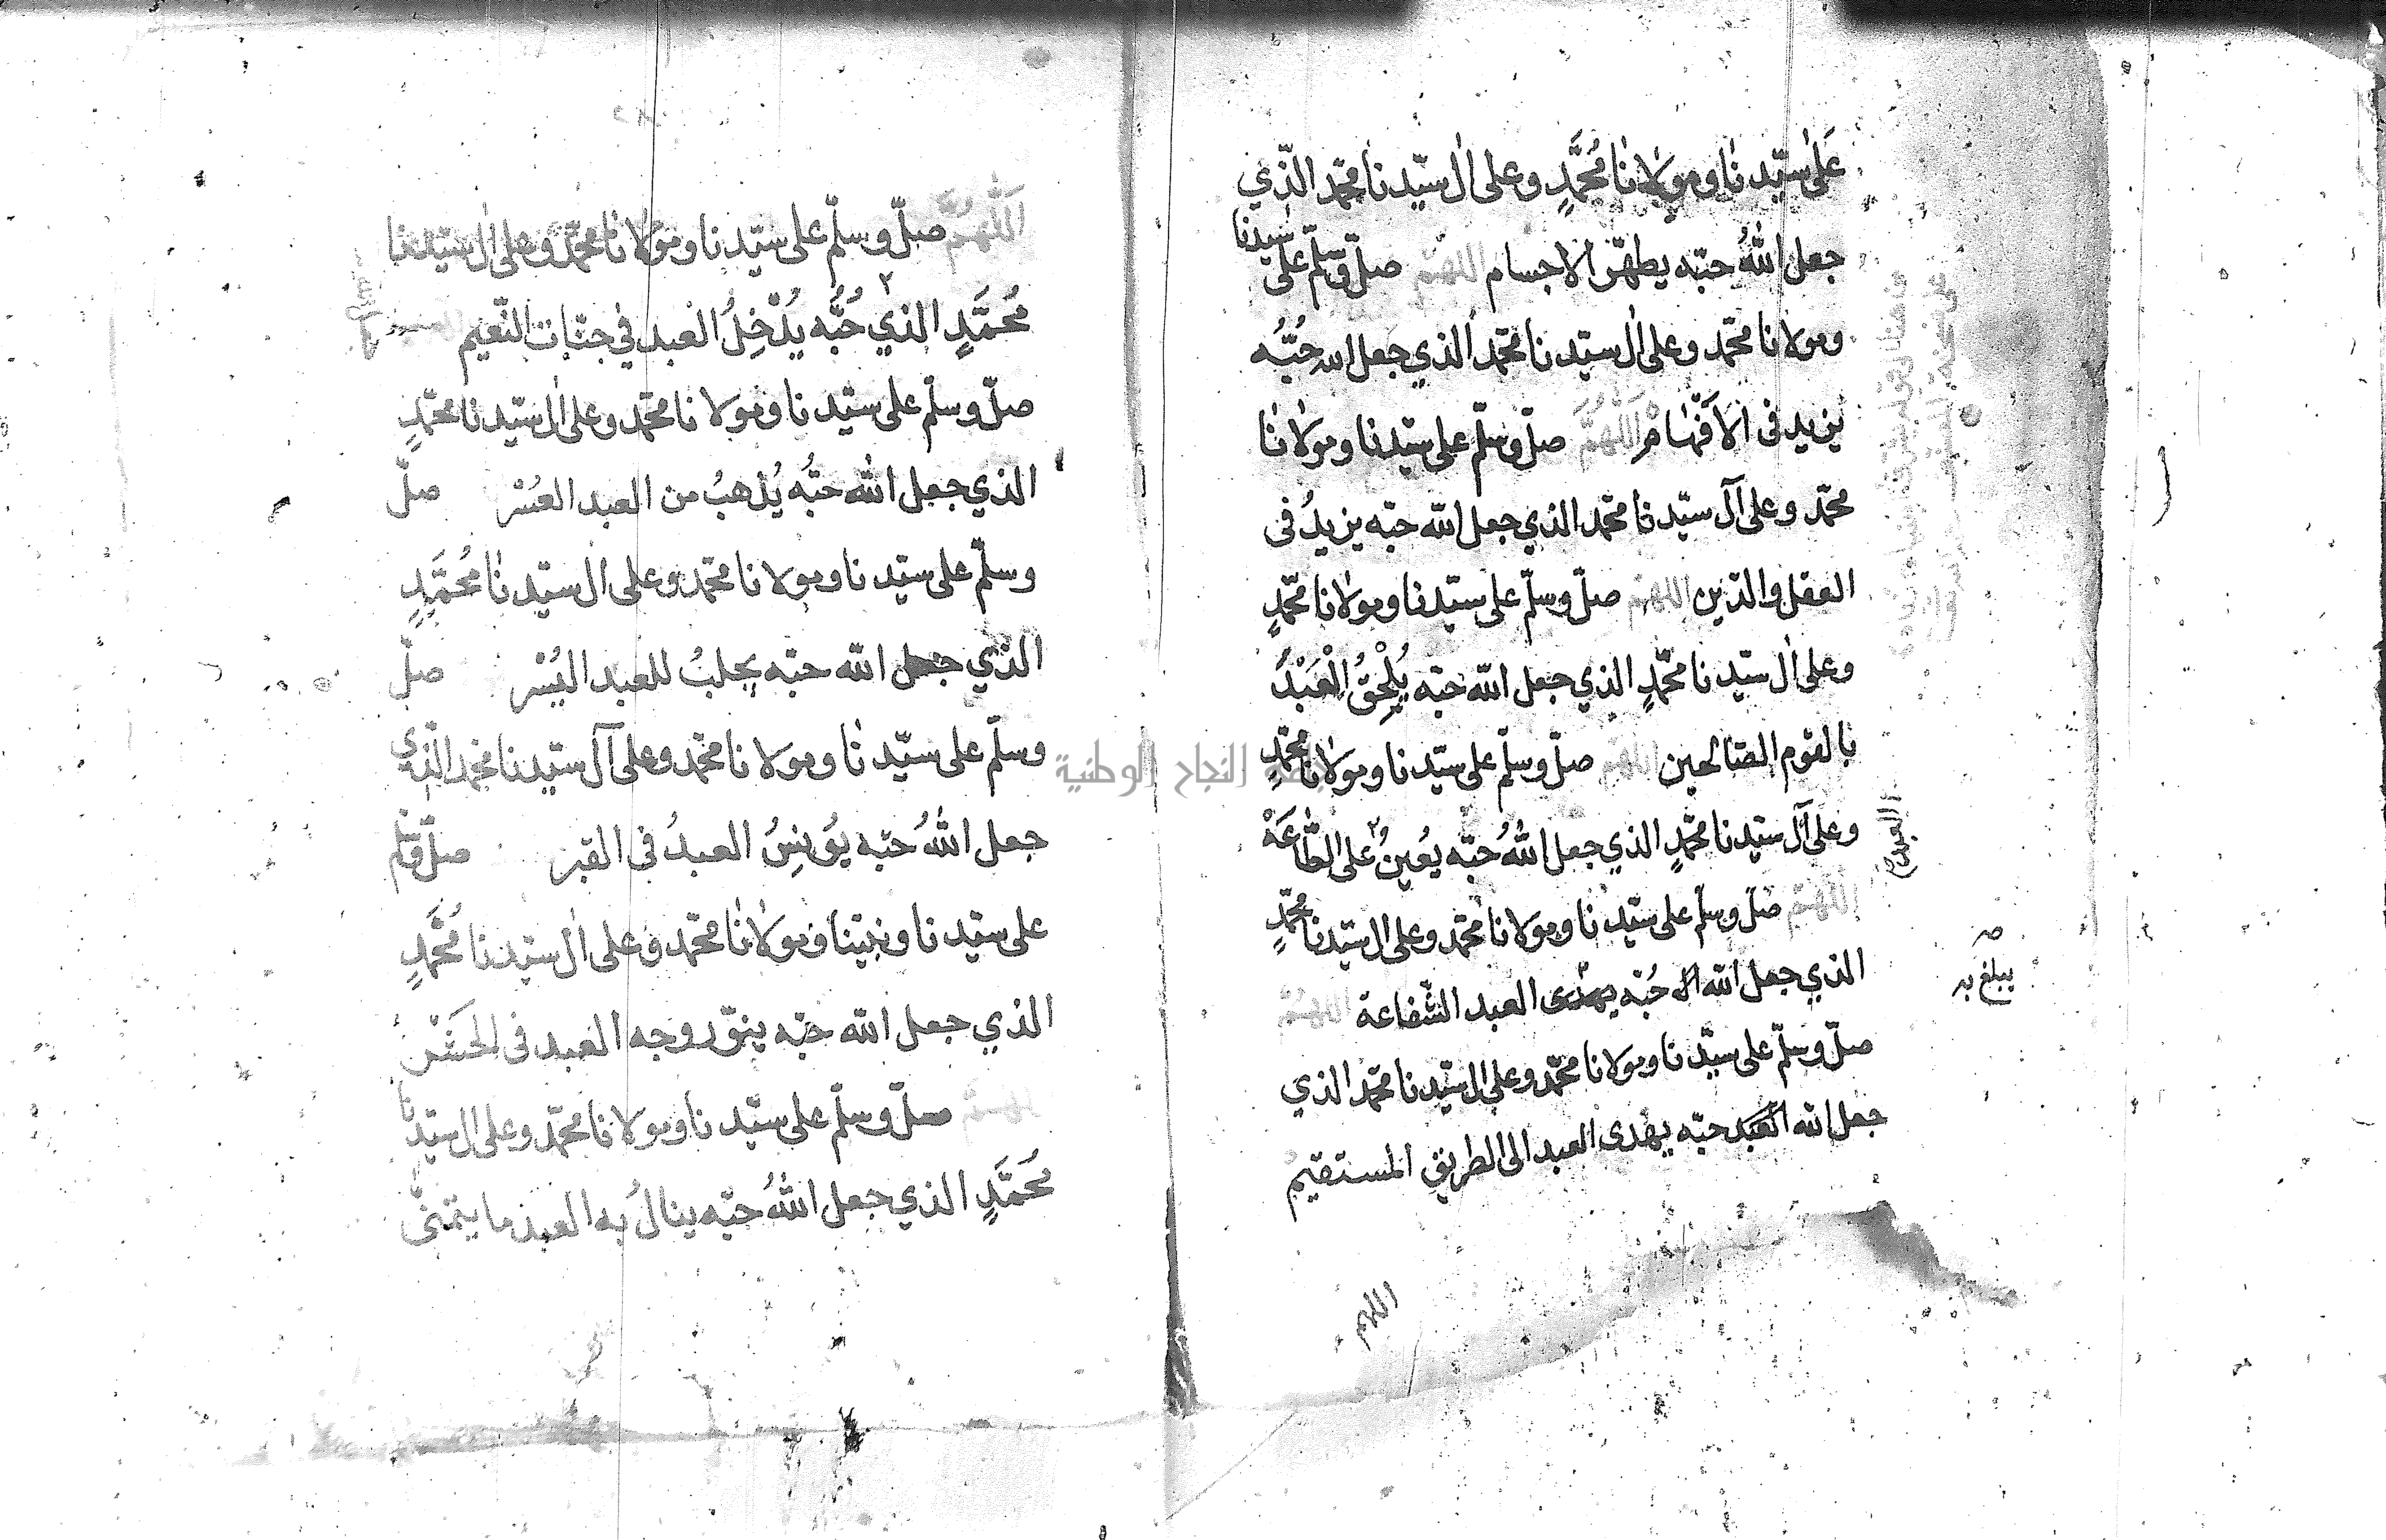 عَلىٰ سيّدنا ومولانا مُحَمَّدٍ وعلى ال سيّدنا محمّد الّذي
جعل اللهُ حبّه يطهّر الاجسام اللهمّ صلّ وسلّم على سيّدنا
ومولانا محمّد وعلى ال سيّدنا محمّد الذي جعل الله حُبُّه
يزيد فى الاَفْهَامْ اَللَّهُمَّ صلّ وسلّم على سيّدنا ومولانا
محمّد وعلى آل سيّدنا محمّد الذي جعل الله حبّه يزيدُ فى
العقل والدّين اللهمّ صلّ وسلّم على سيّدنا ومولانا محمّدٍ
وعلى ال سيّدنا محمّدٍ الذي جعل الله حبّه يُلْحِقُ الْعَبْدَ
بالقوم الصّالحين اللهمّ صلّ وسلّم على سيّدنا ومولانا محمّدٍ
وعلى آل سيّدنا محمّدٍ الذي جعل اللهُ حُبّه يُعينُ على الطّاعَهْ
العبد صح
اللهمّ صلّ وسلّم على سيّدنا ومولانا محمّد وعلى ال سيّدنا محمّدٍ
الذي جعل الله حُبّه يهدى العبد الشّفاعة اللهمّ
يبلغ به
صلّ وسلّم على سيّدنا ومولانا محمّد وعلى ال سيّدنا محمّد الذي
جعل الله العبد حبّه يهدى العبد الى الطريق المستقيم
اللهم
اَللَّهُمَّ صلّ وسلّم على سيّدنا ومولانا محمّد وعلى ال سيّدنا
مُحَمَّدٍ الذي حُبُّه يُدْخِلُ العبد في جنّات النّعيم
صلّ وسلّم على سيّدنا ومولانا محمّد وعلى ال سيّدنا محمّدٍ
الذي جعل الله حبُّه يُذهبُ من العبد العُسْر صلّ
وسلّم على سيّدنا ومولانا محمّد وعلى ال سيّدنا مُحَمَّدٍ
الذي جعل الله حبّه يجلبُ للعبد اليُسْر صلّ
وسلّم على سيّدنا ومولانا محمّد وعلى آل سيّدنا محمّد الّذي
جعل اللهُ حبّه يُونِسُ العبدُ فى القبر صلّ وسلّم
على سيّدنا ونبيّنا ومولانا محمّد وعلى ال سيّدنا مُحَمَّدٍ
الذي جعل الله حبّه ينوّر وجه العبد فى الحَشْر
اللهمّ صلّ وسلّم على سيّدنا ومولانا محمّد وعلى ال سيّدنا
مُحَمَّدٍ الذي جعل اللهُ حبّه ينالُ به العبد ما يتمنّى
النجاح الوطنية